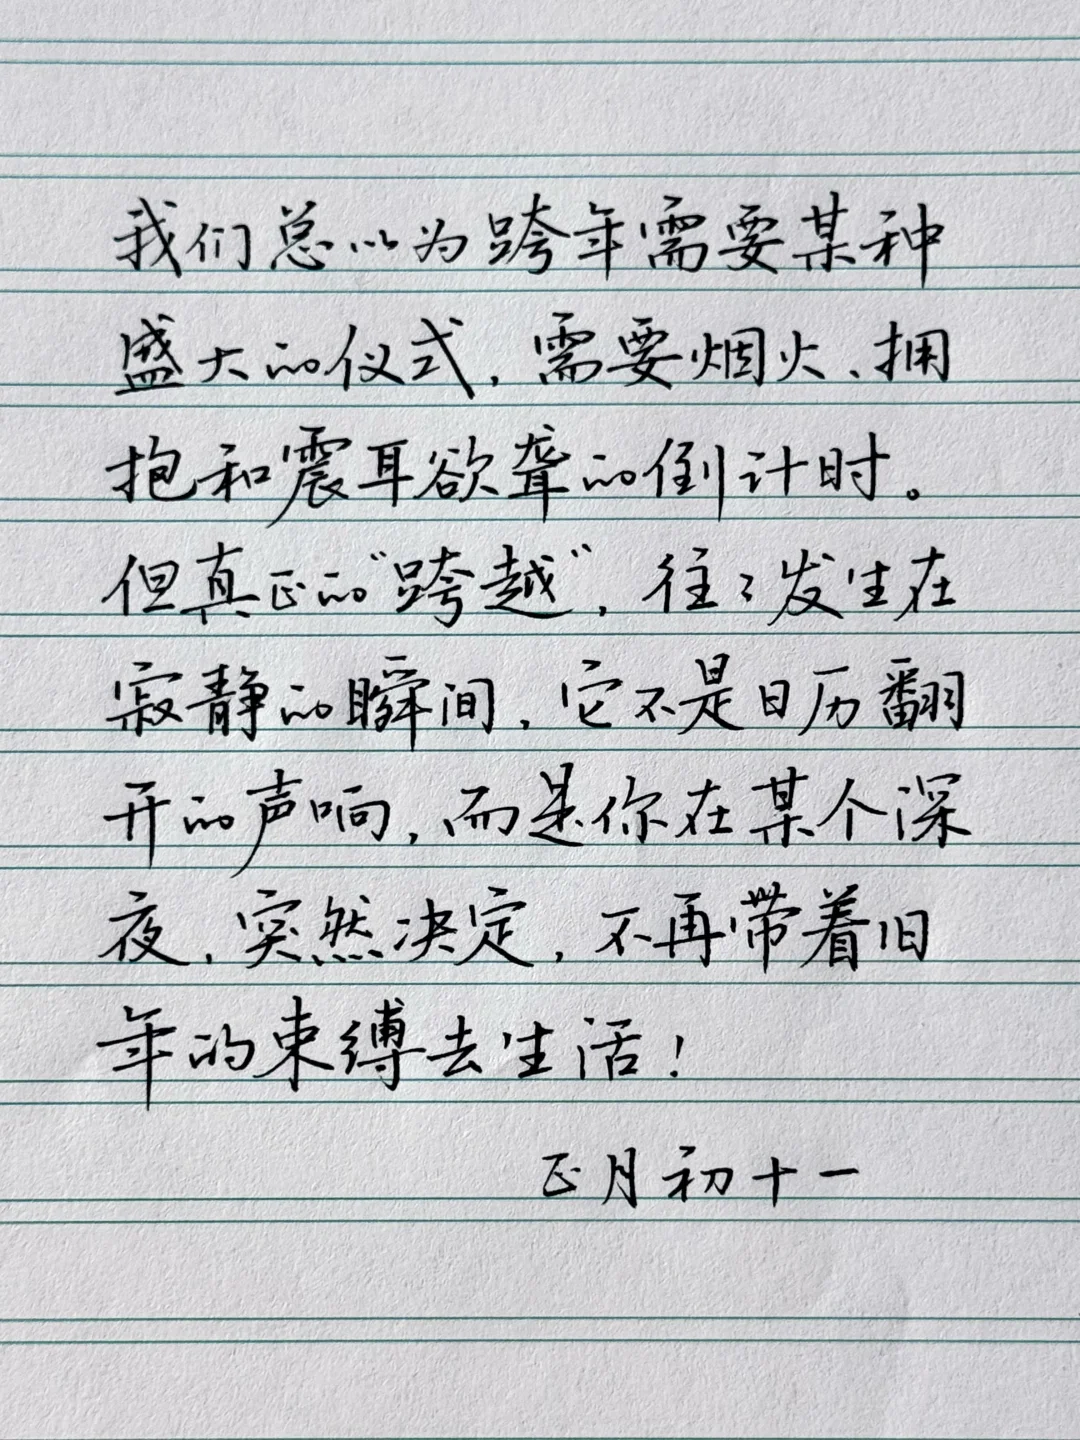 我们总以为跨年需要某种
盛大的仪式，需要烟火、拥
抱和震耳欲聋的倒计时。
但真正的“跨越”，往々发生在
寂静的瞬间，它不是日历翻
开的声响，而是你在某个深
夜，突然决定，不再带着旧
年的束缚去生活！
正月初十一